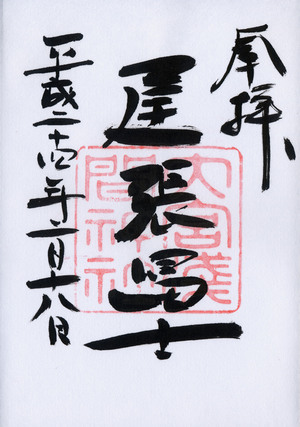 奉拝
尾張冨士
大宮浅
間神社
平成二十四年一月十八日